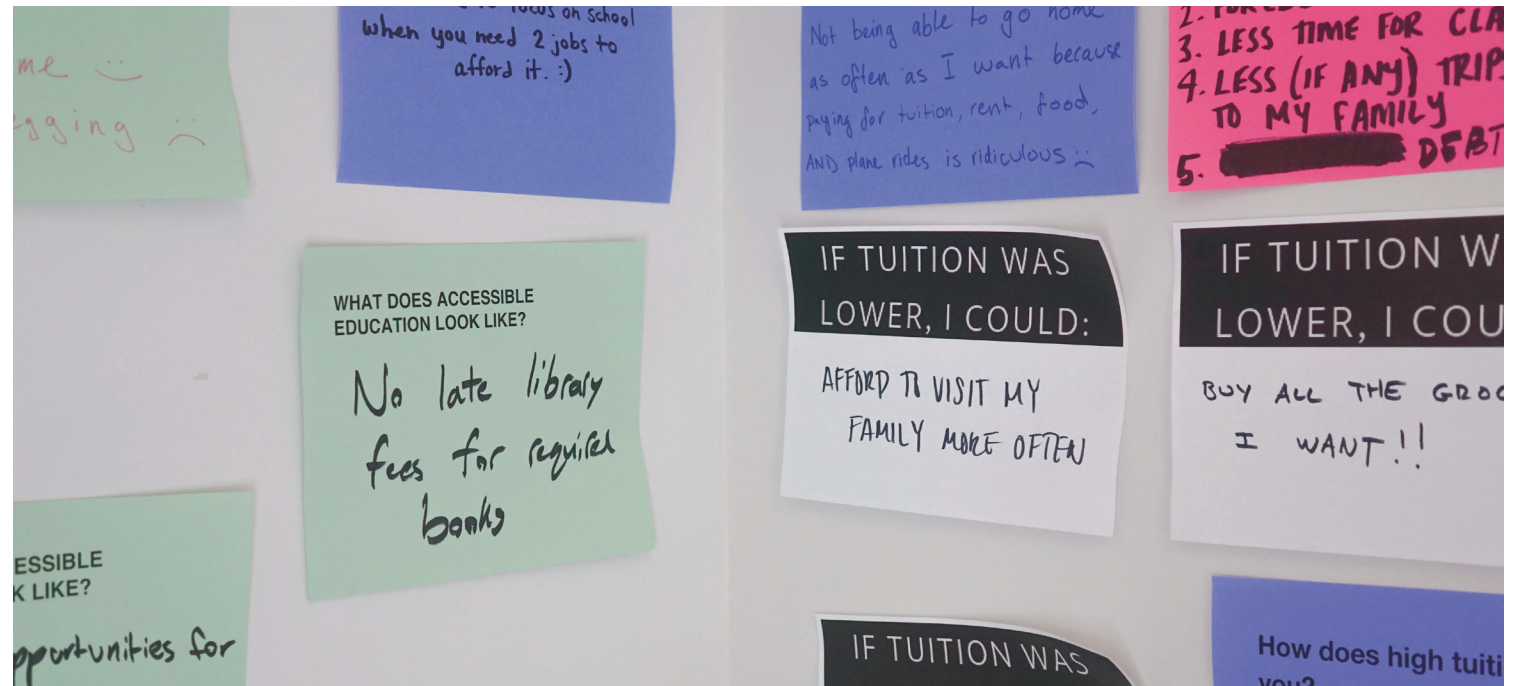 me :)
gging :(
focus on school
when you need 2 jobs to
afford it. :)
Not being able to go home
as often as I want because
paying for tuition, rent, food,
AND plane rides is ridiculous :(
2.
3. LESS TIME FOR CLA
4. LESS (IF ANY) TRIPS
TO MY FAMILY
5. DEBT
WHAT DOES ACCESSIBLE
EDUCATION LOOK LIKE?
No late library
fees for required
books
IF TUITION WAS
LOWER, I COULD:
AFFORD TO VISIT MY
FAMILY MORE OFTEN
IF TUITION W
LOWER, I COU
BUY ALL THE GROC
I WANT!!
ESSIBLE
K LIKE?
pportunities for
IF TUITION WAS
How does high tuiti
you?